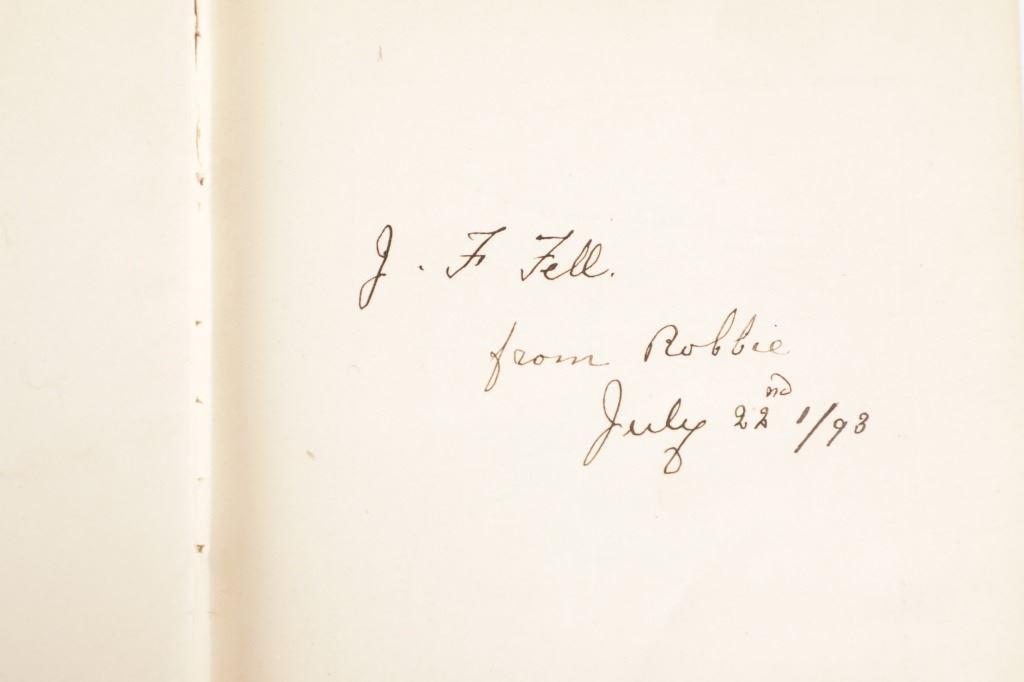 J. F Fell.
from Robbie
July 22nd 1/93